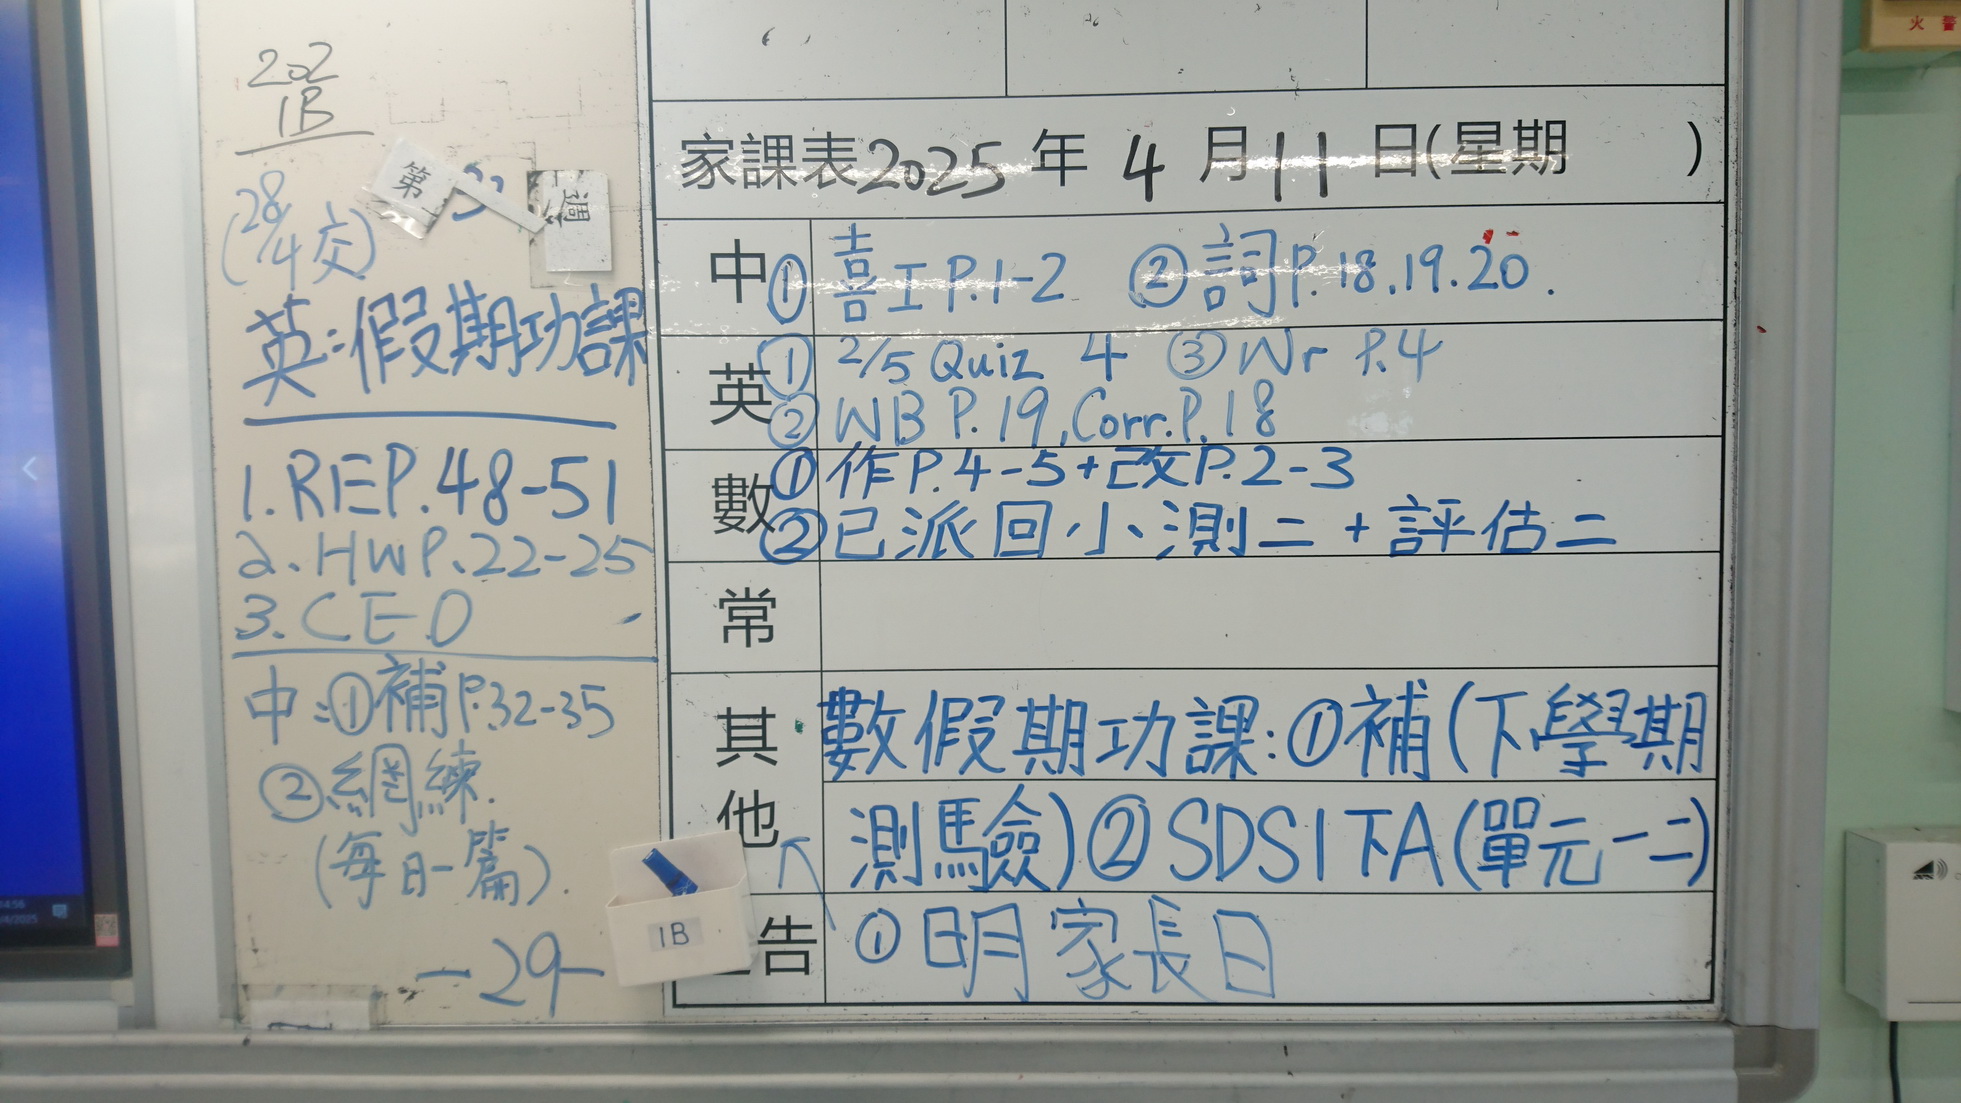 202
1B
第 週
(28/4交)
英:假期功課
1.REP.48-51
2.HWP.22-25
3.CEO
中:①補P.32-35
②網練.
(每日一篇).
-29-
1B
家課表2025年4月11日(星期 )
中 ①喜工P.1-2 ②詞P.18.19.20.
英 ①2/5 Quiz 4 ③Wr P.4
②WB P.19,Corr.P.18
數 ①作P.4-5+改P.2-3
②已派回小測二+評估二
常
其他 數假期功課:①補(下學期
測驗)②SDS1下A(單元一二)
告 ①明家長日
火警